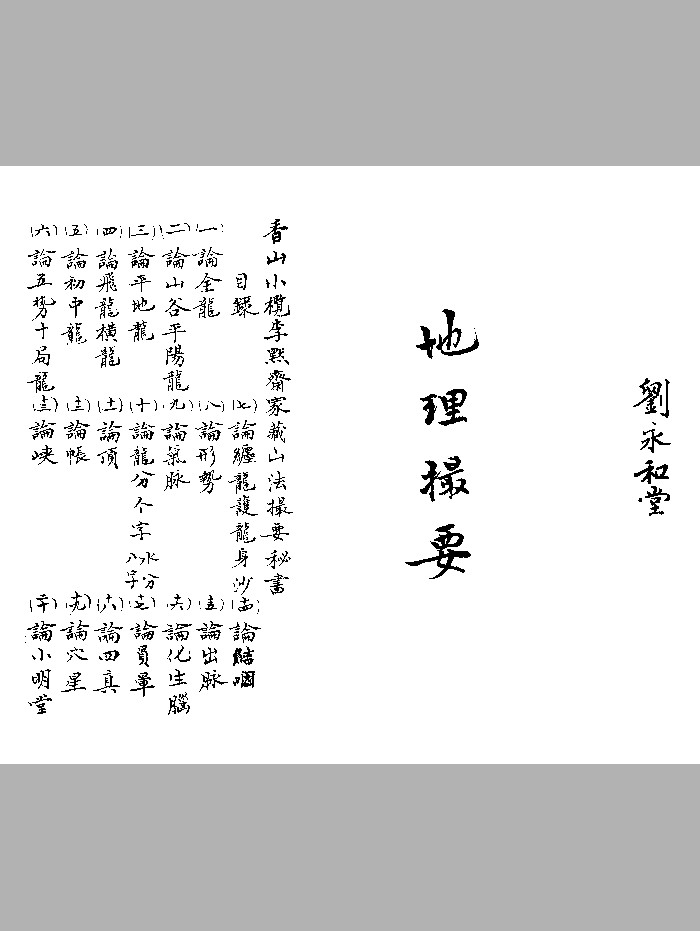 劉永和堂
地理撮要
香山小欖李默齋家藏山法撮要秘書
目錄
(一)論全龍
(二)論山谷平陽龍
(三)論平地龍
(四)論飛龍橫龍
(五)論初中龍
(六)論五勢十局龍
(七)論纏龍護龍身沙
(八)論形勢
(九)論氣脉
(十)論龍分个字 水分八字
(十一)論頂
(十二)論帳
(十三)論峽
(十四)論結咽
(十五)論出脉
(十六)論化生腦
(十七)論員暈
(十八)論四真
(十九)論穴星
(二十)論小明堂